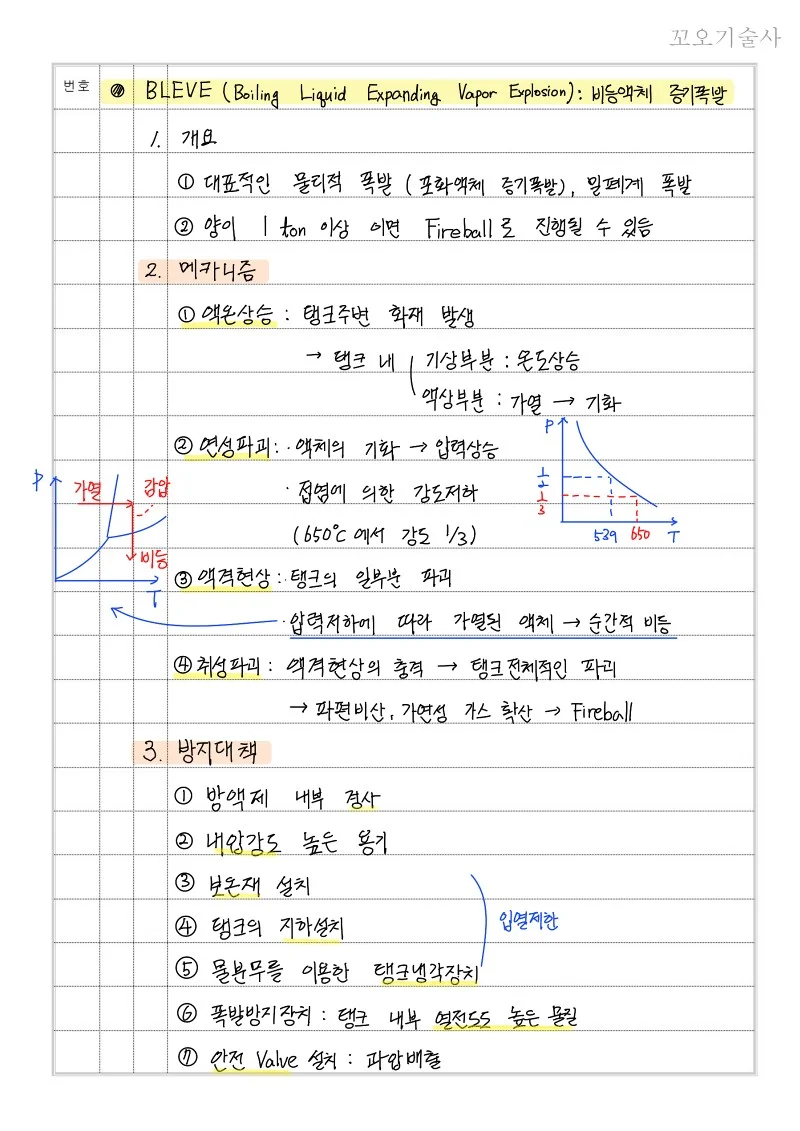 꼬오기술사
번호
BLEVE (Boiling Liquid Expanding Vapor Explosion): 비등액체 증기폭발
1. 개요
① 대표적인 물리적 폭발 (포화액체 증기폭발), 밀폐계 폭발
② 양이 1 ton 이상 이면 Fireball로 진행될 수 있음
2. 메카니즘
① 액온상승 : 탱크주변 화재 발생
→ 탱크 내 기상부분 : 온도상승
액상부분 : 가열 → 기화
② 연성파괴 : · 액체의 기화 → 압력상승
· 접염에 의한 강도저하
(650℃에서 강도 1/3)
P
1/2
1/3
539 650 T
P
가열 감압
비등
T
③ 액격현상 : · 탱크의 일부분 파괴
· 압력저하에 따라 가열된 액체 → 순간적 비등
④ 취성파괴 : 액격현상의 충격 → 탱크전체적인 파괴
→ 파편비산, 가연성 가스 확산 → Fireball
3. 방지대책
① 방액제 내부 경사
② 내압강도 높은 용기
③ 보온재 설치
④ 탱크의 지하설치
⑤ 물분무를 이용한 탱크냉각장치
입열제한
⑥ 폭발방지장치 : 탱크 내부 열전도도 높은 물질
⑦ 안전 Valve 설치 : 과압배출